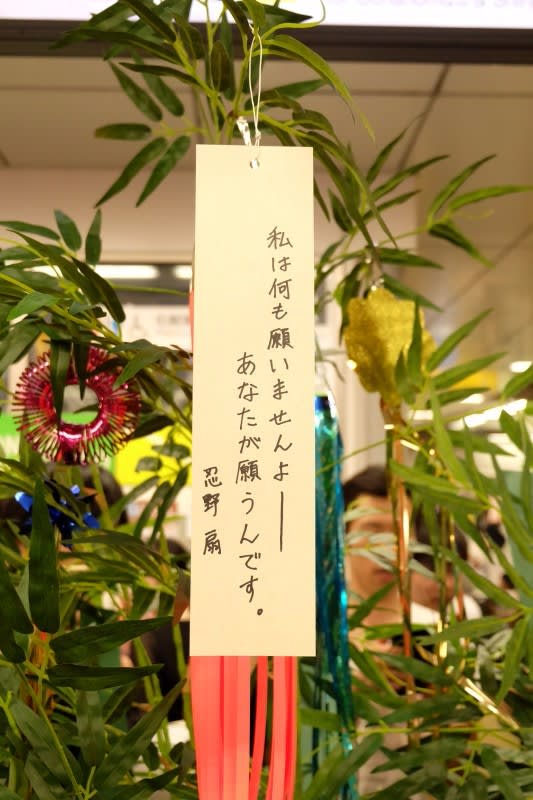 私は何も願いませんよ――
あなたが願うんです。
忍野 扇